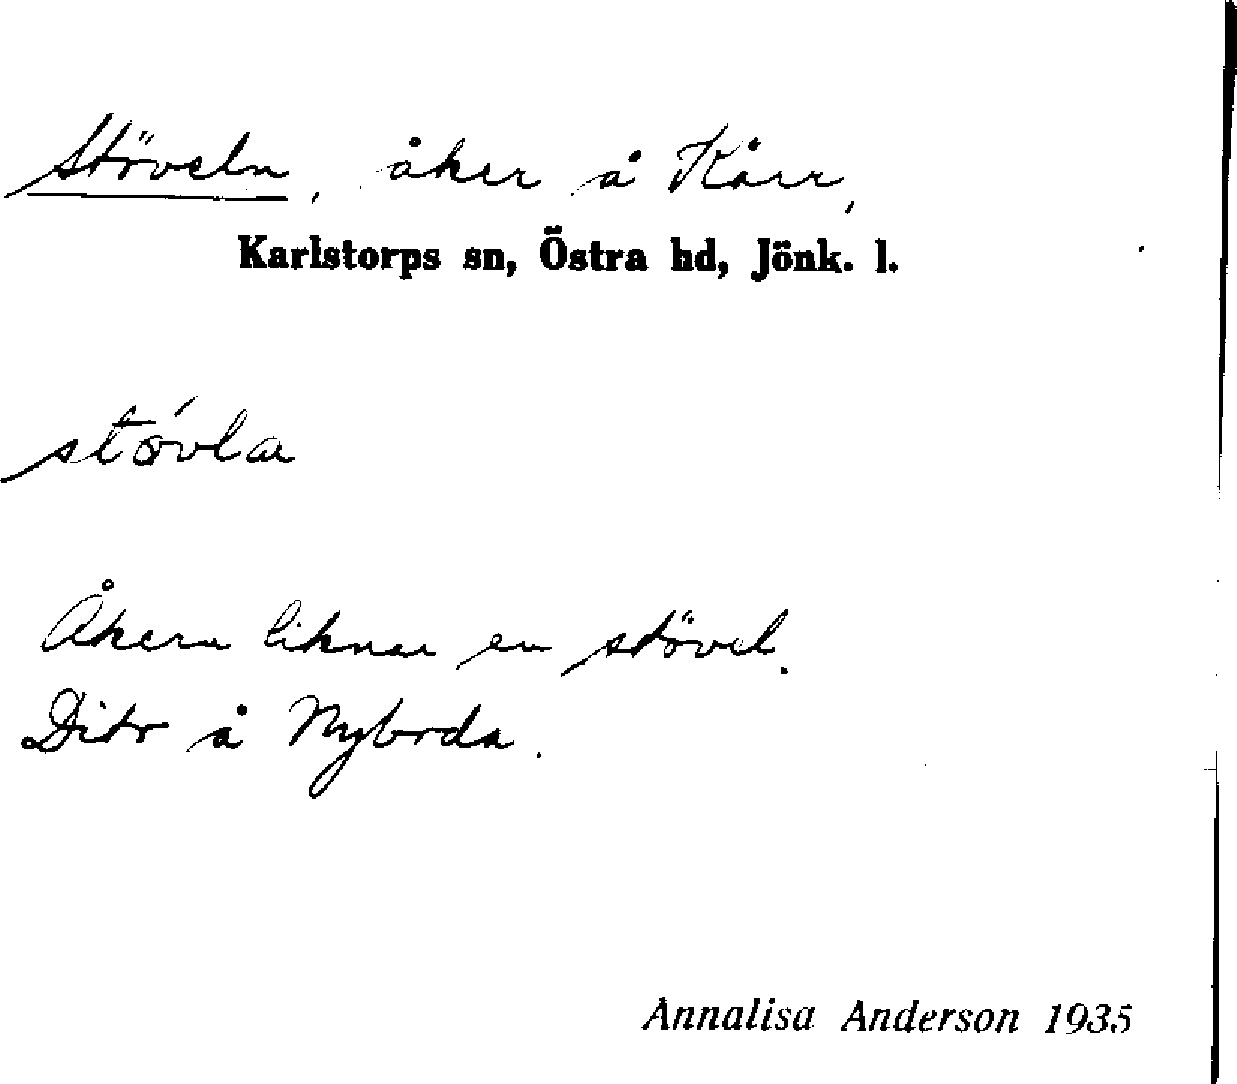 Stöveln, åker å Kårr,
Karlstorps sn, Östra hd, Jönk. l.
Åkern liknar en stövel.
Dito å Nybroda.
Annalisa Anderson 1935